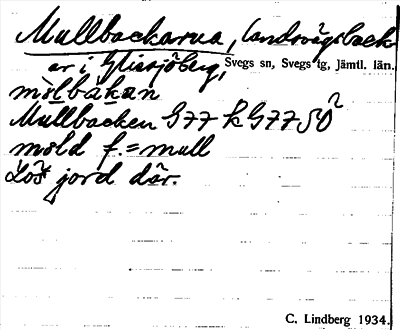 Mullbackarna, landsvägsback
er i Glissjöberg, Svegs sn, Svegs tg, Jämtl. län.
môlbakan
Mullbacken G77 k G77 50²
mold f. = mull
Lös jord där.
C. Lindberg 1934.